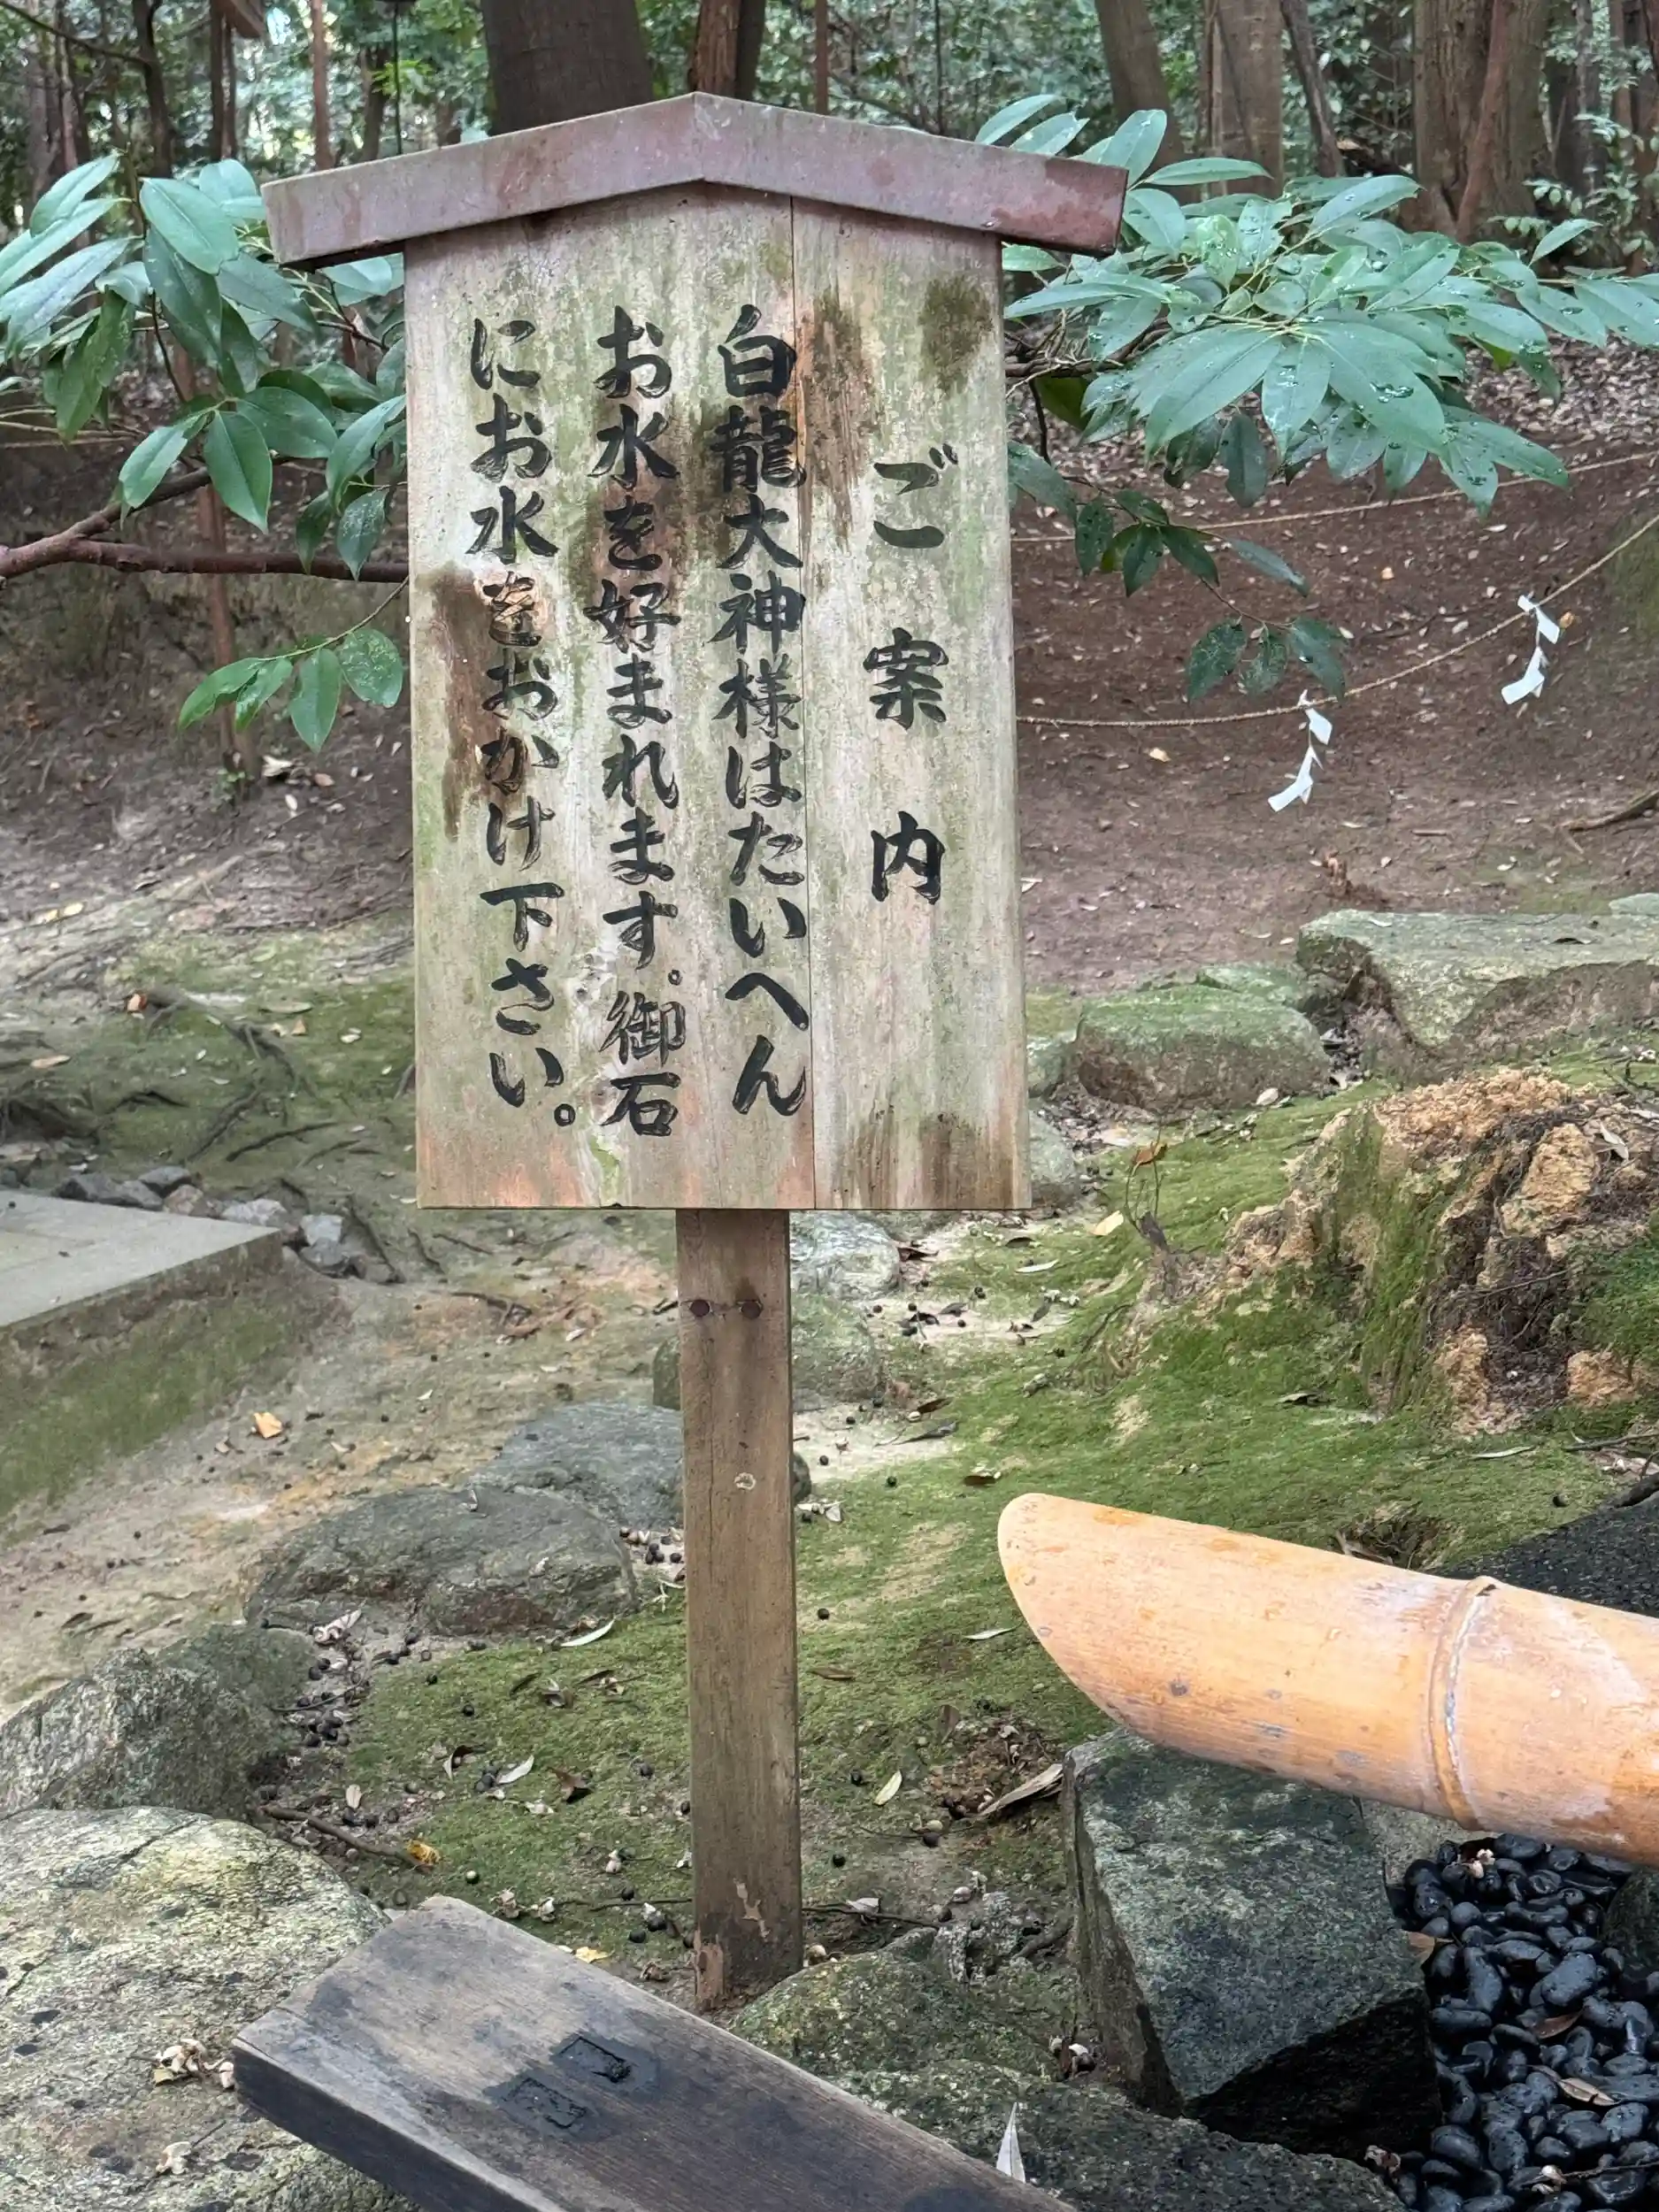 ご案内
白龍大神様はたいへん
お水を好まれます。御石
にお水をおかけ下さい。